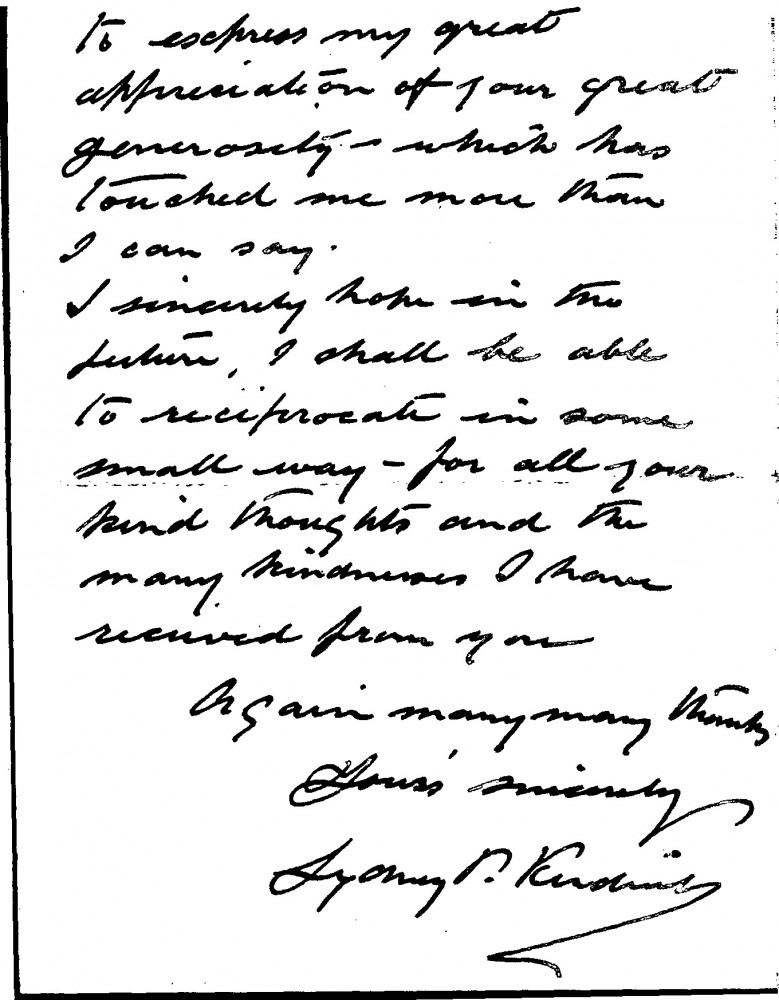 to express my great
appreciation of your great
generosity - which has
touched me more than
I can say.
I sincerely hope in the
future, I shall be able
to reciprocate in some
small way - for all your
kind thoughts and the
many kindnesses I have
received from you
Again many many thanks
Yours sincerely
Sydney P.